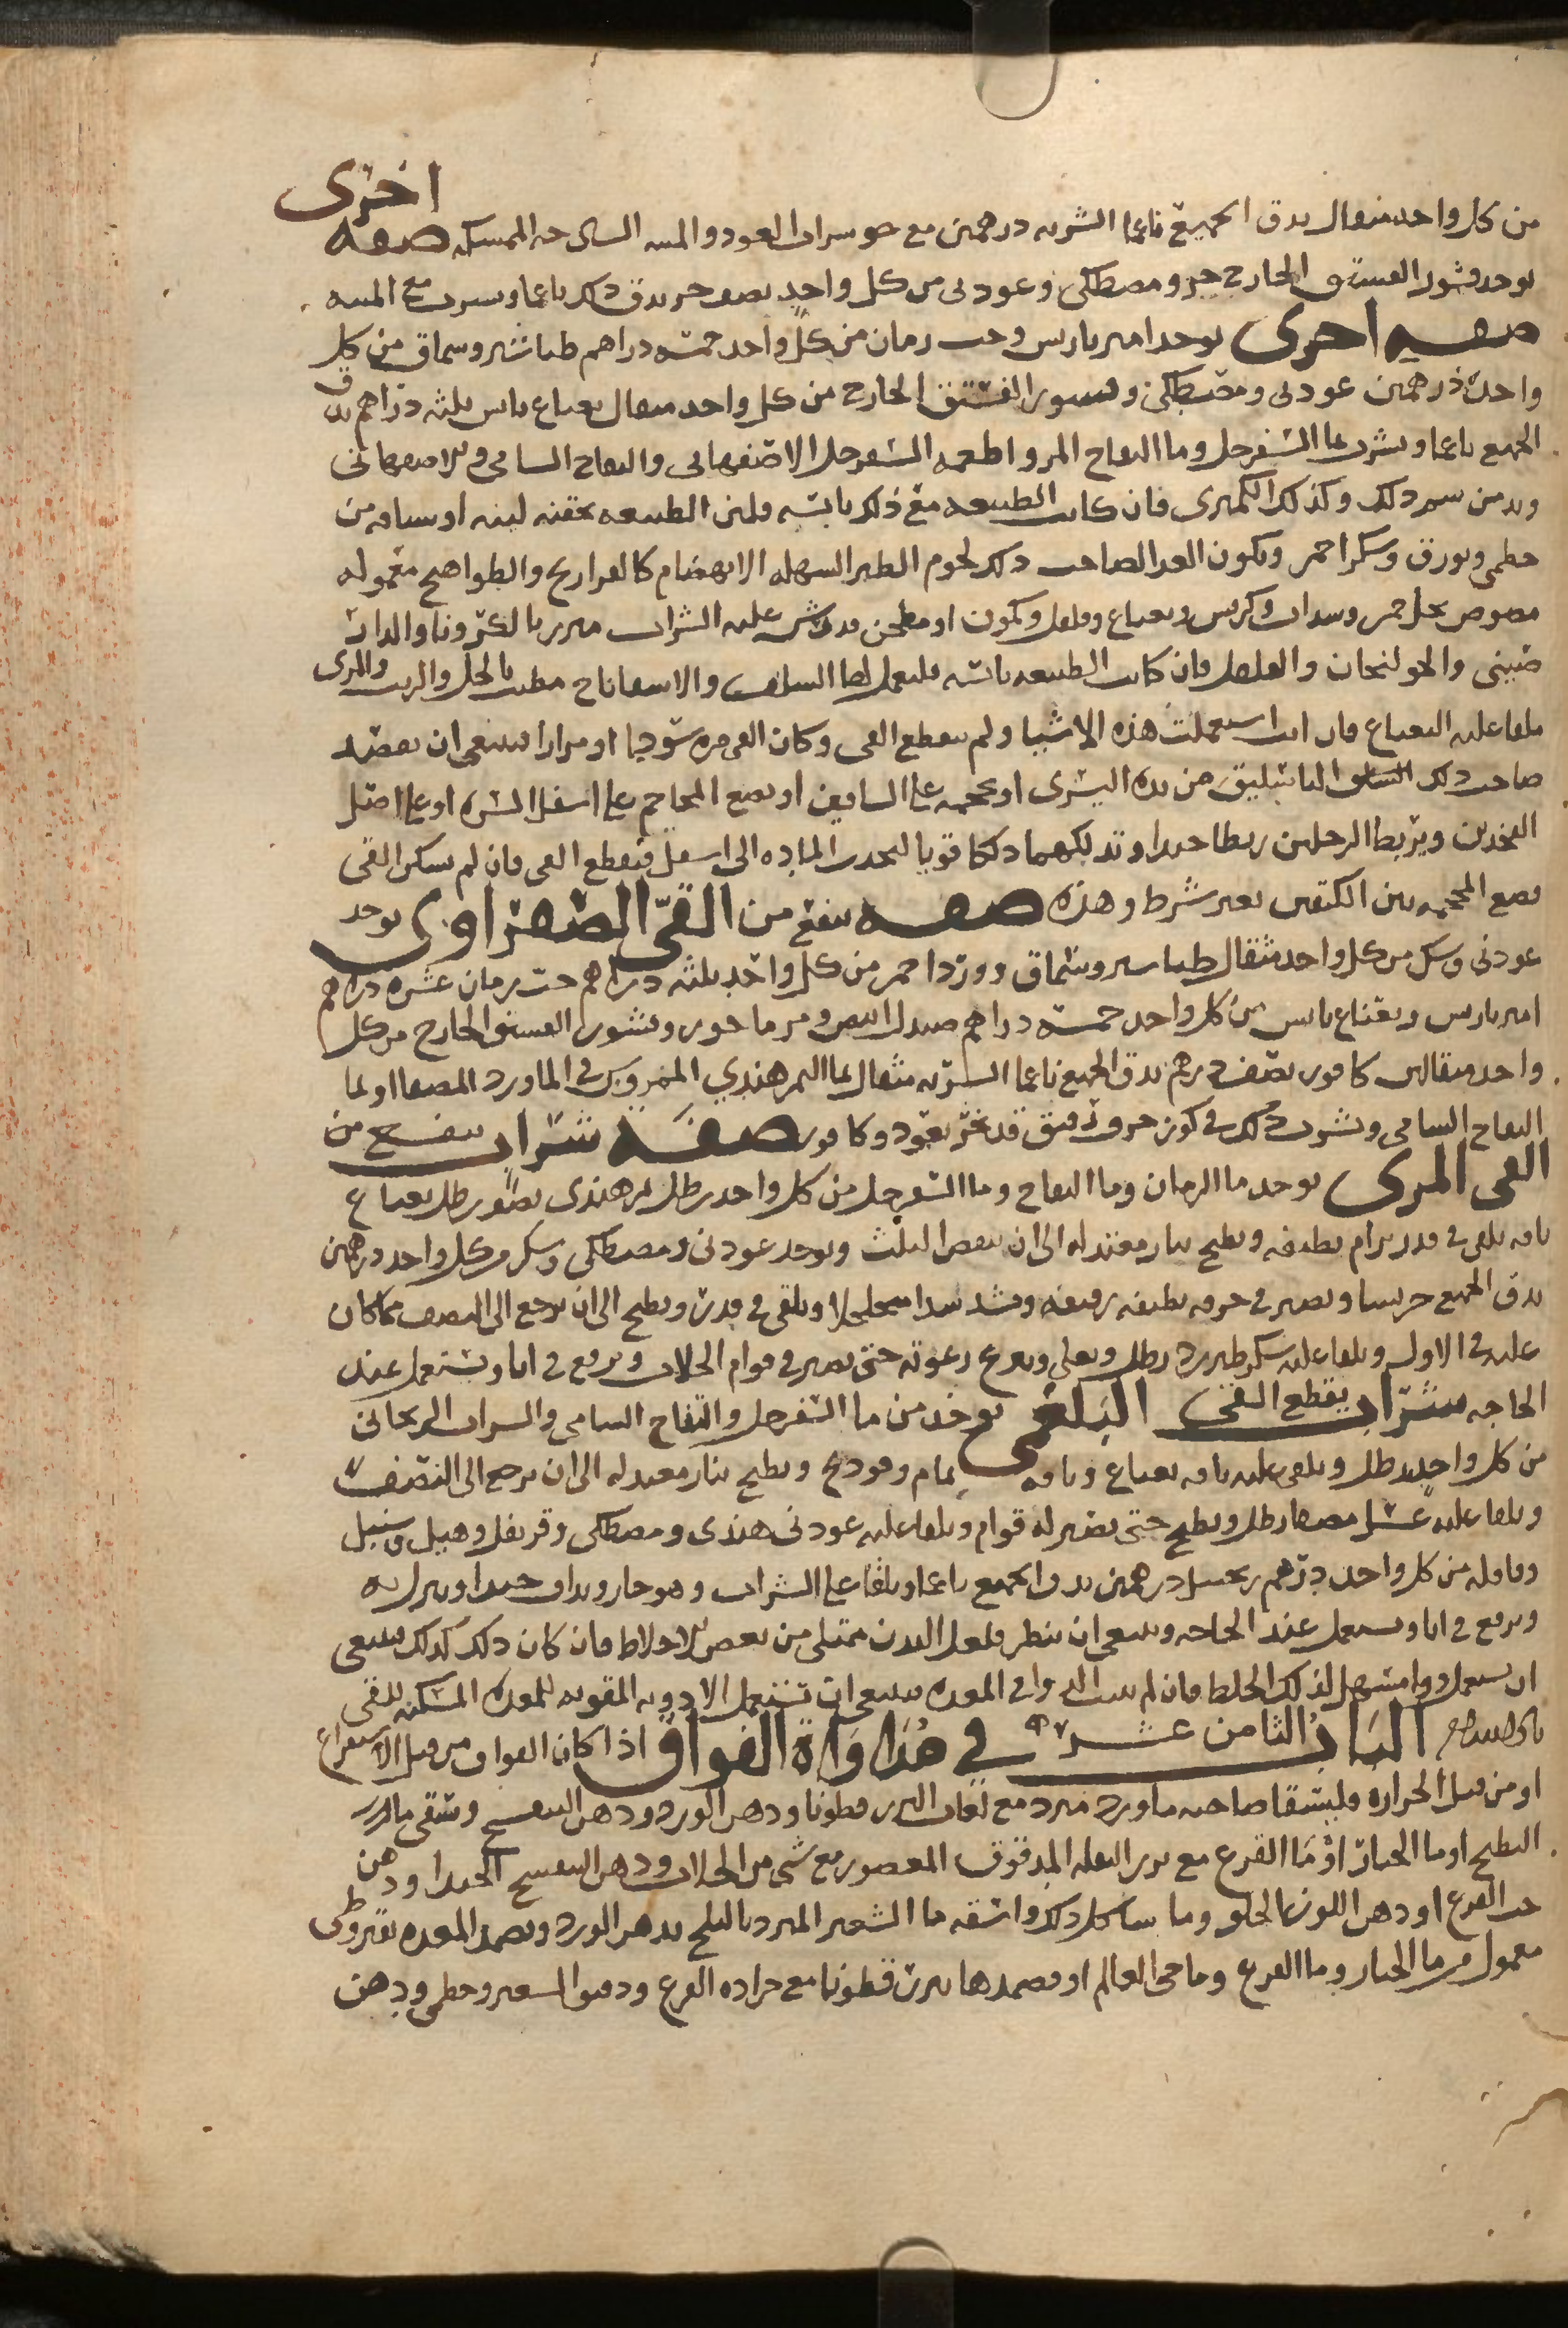 من كل واحد مثقال يدق الجميع ناعما الشربه درهمين مع جو سراب العود والمسه الساى حه الممسكه صفه اخرى
يوخذ قشور الفستق الخارج جزو مصطكى وعود نى من كل واحد نصف جز يدق ذلك ناعما ويشرب مع الميبه
صفه اخرى يوخذ امير باريس وحب رمان من كل واحد خمسه دراهم طباشير وسماق من كل
واحد درهمين عود نى ومصطكى وقشور الفستق الخارج من كل واحد مثقال نعناع يابس ثلثه دراهم يدق
الجميع ناعما ويشرب بما السفرجل وما التفاح المز واطعمه السفرجل الاصفهانى والتفاح السامى والاصفهانى
ويدمن شم ذلك وكذلك الكمثرى فان كانت الطبيعه مع ذلك يابسه فلين الطبيعه بحقنه لينه او شيافه من
خطمى وبورق وسكر احمر ويكون الغدا لصاحب ذلك لحوم الطير السهله الانهضام كالفراريج والطواهيج معموله
مصوص بخل خمر وسداب وكرفس ونعناع وفلفل وكمون او مطجن قد رش عليه الشراب مبزر بالكزبره والدار
صينى والخولنجان والفلفل فان كانت الطبيعه يابسه فليعمل لها السلق والاسفاناخ مطيب بالخل والزيت والمرى
ملقا عليه النعناع فان انت استعملت هذه الاشيا ولم ينقطع القى وكان القى مره سودا او مرارا فينبغى ان يفصد
صاحب ذلك الباسليق من يده اليسرى او يحجمه على الساقين او يضع المحاجم على اسفل السره او على اصل
الفخذين ويربط الرجلين ربطا جيدا وتدلكهما دلكا قويا لتحدر الماده الى اسفل فينقطع القى فان لم يسكن القى
يضع المحجمه بين الكتفين بغير شرط وهذه صفه ينفع من القى الصفراوى يوخذ
عود نى وسك من كل واحد مثقال طباسير وسماق وورد احمر من كل واحد ثلثه دراهم حب رمان عشره دراهم
امير باريس ونعناع يابس من كل واحد خمسه دراهم صندل ابيض ومرماخور وقشور الفستق الخارج من كل
واحد مثقالين كافور نصف درهم يدق الجميع ناعما الشربه مثقال بما التمر هندي الممروس فى الماورد المصفا او بما
التفاح السامى ويشرب ذلك فى كوز خزف دقيق قد بخر بعود وكافور صفه شراب ينفع من
القى المرى يوخذ ما الرمان وما التفاح وما السفرجل من كل واحد رطل تمر هندى نصف رطل نعناع
باقه يلقى فى قدر برام نظيفه ويطبخ بنار معتدله الى ان ينقص الثلث ويوخذ عود نى ومصطكى وسك من كل واحد درهمين
يدق الجميع جريشا ويصير فى خرقه نظيفه رفيعه ويشد شدا متخلخلا ويلقى فى قدر ويطبخ الى ان يرجع الى النصف مما كان
عليه فى الاول ويلقا عليه سكر طبرزد رطل ويغلى وينزع رغوته حتى يصير فى قوام الجلاب ويرفع فى انا ويستعمل عند
الحاجه شراب يقطع القى البلغمى يوخذ من ما السفرجل والتفاح السامى والشراب الريحانى
من كل واحد رطل ويلقى عليه باقه نعناع وباقه نمام وفودنج ويطبخ بنار معتدله الى ان يرجع الى النصف
ويلقا عليه عسل مصفا رطل ويطبخ حتى يصير له قوام ويلقا عليه عود نى هندى ومصطكى وقرنفل وهيل وسنبل
وقاقله من كل واحد درهم زنجبيل درهمين يدق الجميع ناعما ويلقا على الشراب وهو حار ويداف جيدا وينزل به
ويرفع فى انا ويستعمل عند الحاجه وينبغى ان ينظر فلعل البدن ممتلى من بعض الاخلاط فان كان ذلك كذلك فينبغى
ان يستعمل دوا مسهل لذلك الخلط فان لم يثبت الدوا فى المعده فينبغى ان تستعمل الادويه المقويه للمعده المسكنه للقى
الباب الثامن عشر فى مداواة الفواق اذا كان الفواق من قبل الاستفراغ
او من قبل الحراره فليسقا صاحبه ماورد مبرد مع لعاب البزر قطونا ودهن الورد ودهن البنفسج وتسقى ما بزر
البطيخ او ما الخيار او ما القرع مع بزر البقله المدقوق المعصور مع شى من الجلاب ودهن البنفسج الجيد او دهن
حب القرع او دهن اللوز الحلو وما شاكل ذلك واسقه ما الشعير المبرد بالثلج بدهن الورد ويضمد المعده بقيروطى
معمول من ما الخيار وما القرع وما حى العالم او فضمدها ببزر قطونا مع جراده القرع ودقيق الشعير وخطمى ودهن